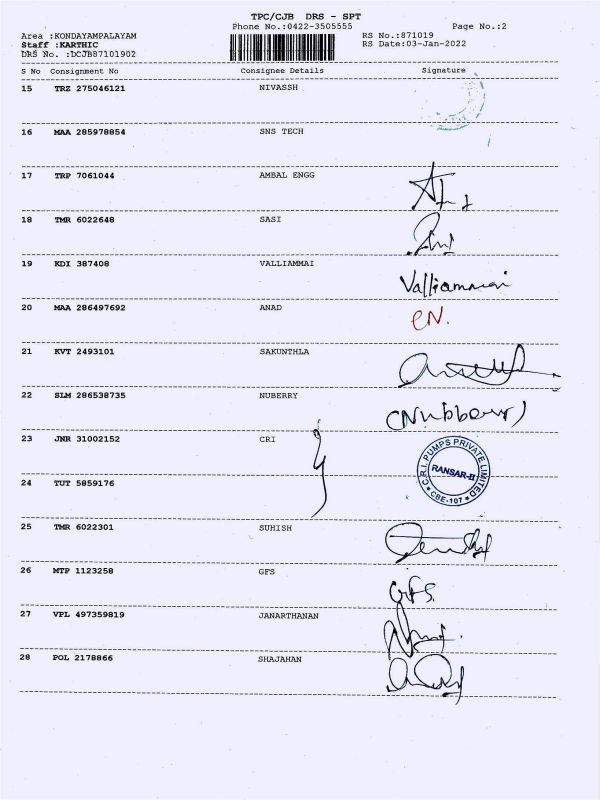 TPC/CJB DRS - SPT
Phone No.:0422-3505555
Page No.:2
Area :KONDAYAMPALAYAM
Staff :KARTHIC
DRS No. :DCJB87101902
RS No.:871019
RS Date:03-Jan-2022
S No Consignment No Consignee Details Signature
15 TRZ 275046121 NIVASSH
16 MAA 285978854 SNS TECH
17 TRP 7061044 AMBAL ENGG
18 TMR 6022648 SASI
19 KDI 387408 VALLIAMMAI
Valliammai
20 MAA 286497692 ANAD
CN.
21 KVT 2493101 SAKUNTHLA
22 SLM 286538735 NUBERRY
(Nubberry)
23 JNR 31002152 CRI
C.R.I. PUMPS PRIVATE LIMITED
RANSAR-II
* CBE-107 *
24 TUT 5859176
25 TMR 6022301 SUHISH
26 MTP 1123258 GFS
GFS.
27 VPL 497359819 JANARTHANAN
28 POL 2178866 SHAJAHAN